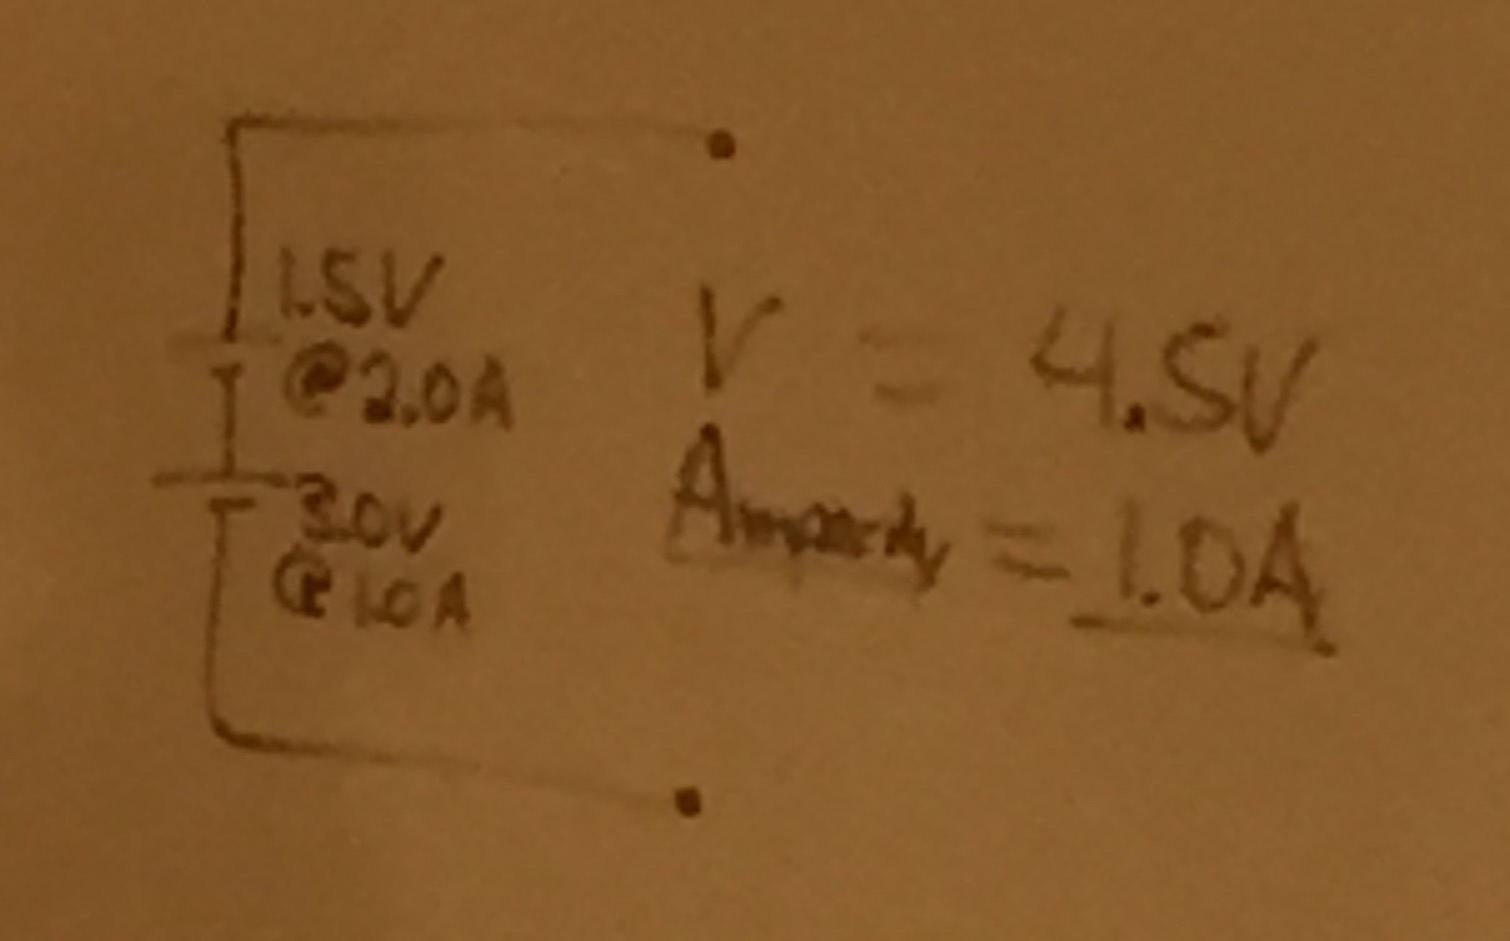 1.5V
@2.0A
3.0V
@1.0A
V = 4.5V
Ampacity = 1.0A